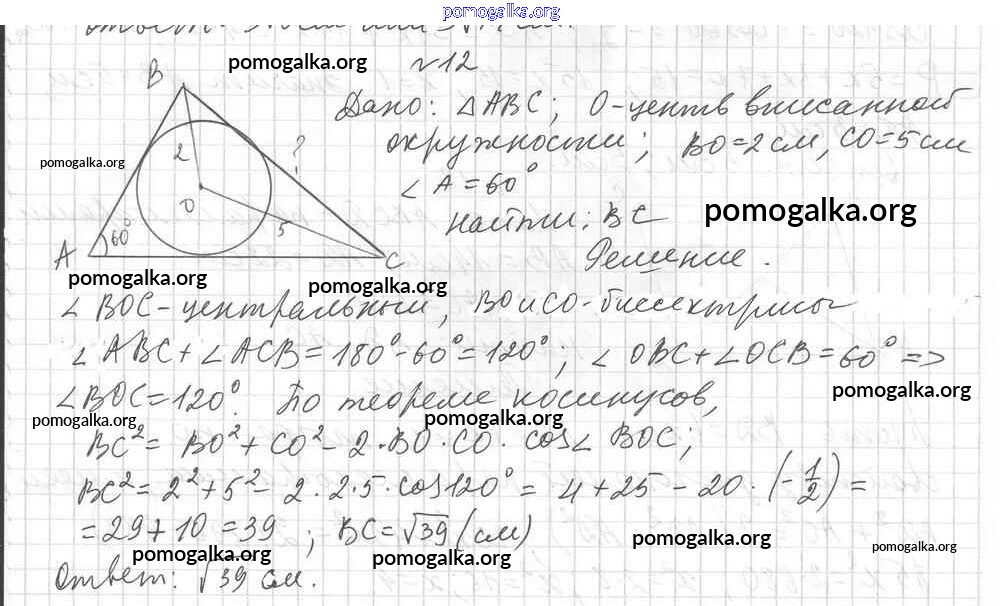 pomogalka.org
№12
pomogalka.org
B
Дано: △ABC; O-центр вписанной
окружности; BO=2см, CO=5см
∠A=60°
Найти: BC
pomogalka.org
Решение.
pomogalka.org
2
?
O
5
60°
A
C
pomogalka.org
pomogalka.org
∠BOC-центральный, BO и CO-биссектрисы
∠ABC+∠ACB=180°-60°=120°; ∠OBC+∠OCB=60° =>
pomogalka.org
∠BOC=120°. По теореме косинусов,
pomogalka.org
pomogalka.org
BC²= BO²+CO²-2·BO·CO·cos∠BOC;
BC²=2²+5²-2·2·5·cos120°=4+25-20·(-1/2)=
=29+10=39; BC=√39 (см)
pomogalka.org
pomogalka.org
pomogalka.org
pomogalka.org
Ответ: √39 см.